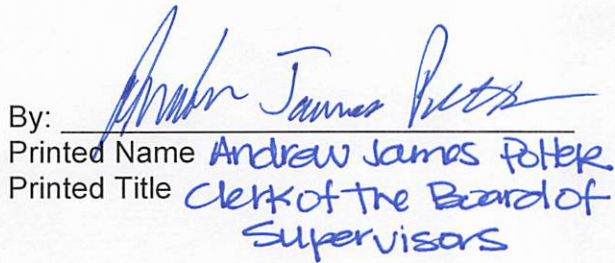 By: Andrew James Potter
Printed Name Andrew James Potter
Printed Title Clerk of the Board of
Supervisors